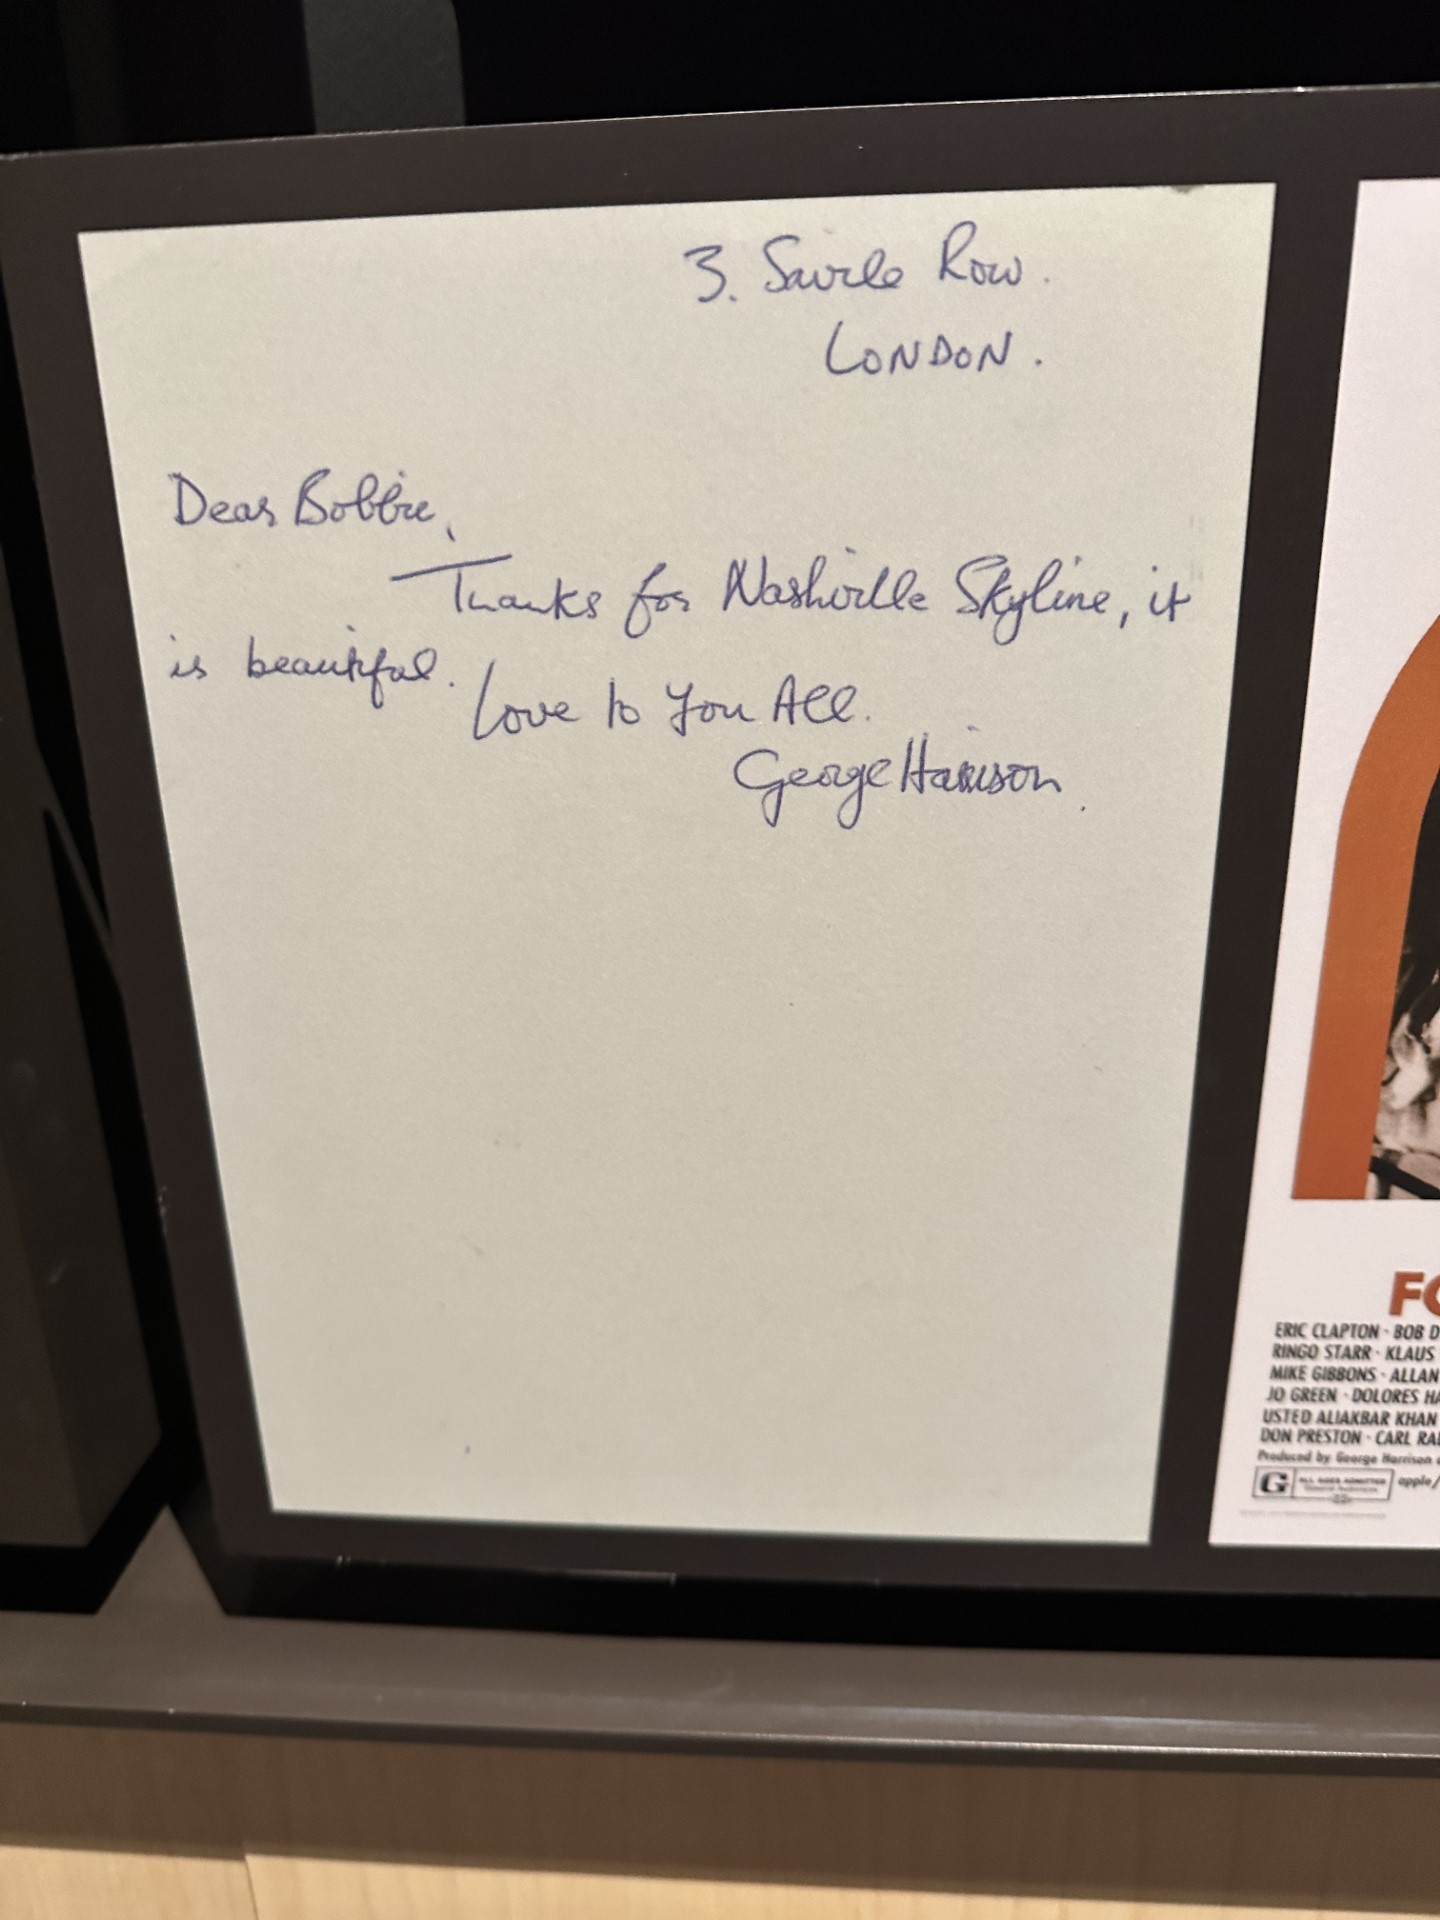 3. Savile Row.
LONDON.
Dear Bobbie,
Thanks for Nashville Skyline, it
is beautiful.
Love to You All.
George Harrison.
FO
ERIC CLAPTON · BOB D
RINGO STARR · KLAUS
MIKE GIBBONS · ALLAN
JO GREEN · DOLORES HA
USTED ALIAKBAR KHAN
DON PRESTON · CARL RA
Produced by George Harrison
G ALL AGES ADMITTED
apple/